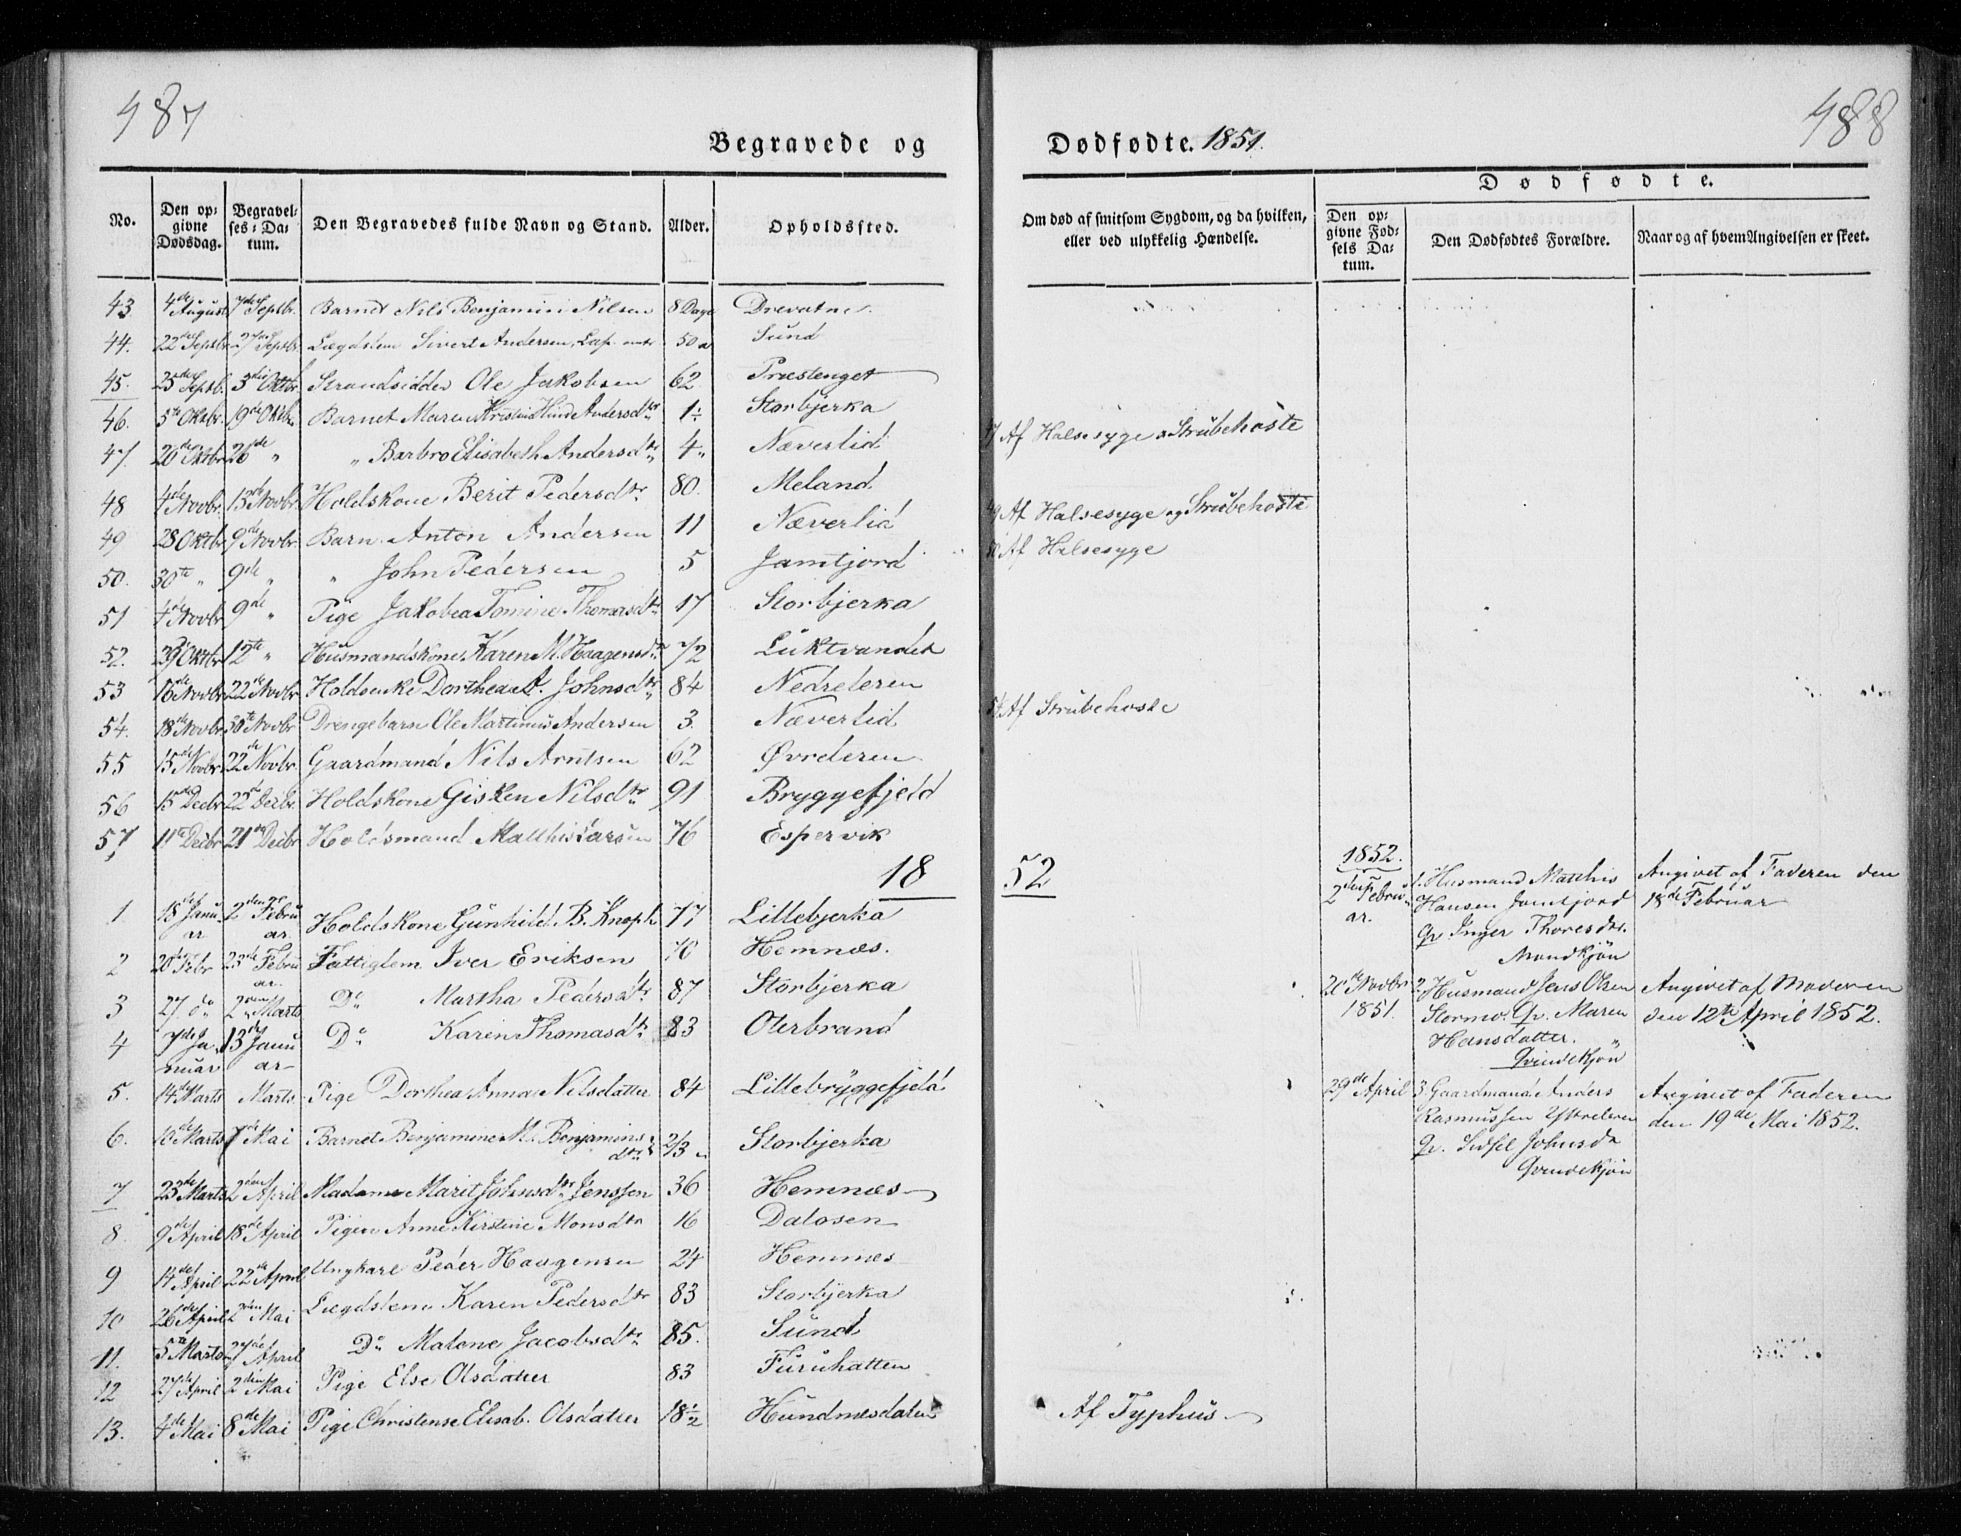 487
488
Begravede og Dødfødte. 1851.
No.
Den opgivne Dødsdag.
Begravelses-Datum.
Den Begravedes fulde Navn og Stand.
Alder.
Opholdssted.
Om død af smitsom Sygdom, og da hvilken, eller ved ulykkelig Hændelse.
Dødfødte.
Den opgivne Fødsels Datum.
Den Dødfødtes Forældre.
Naar og af hvem Angivelsen er skeet.
43 4de August 7de Septbr. Barnet Nils Benjamin Nilsen 8 Dage Drevatne
44. 22de Septbr 27de Septbr Lægdslem Sivert Andersen, Lap 50 Sund
45. 25de Septb. 3die Oktbr. Strandsidder Ole Jakobsen 62 Præstenget
46. 5te Oktbr. 19de Oktbr Barnet Maren Kristine Andersdtr 1 Storbjerka
47. 20de Oktbr 26de " " Barbro Elisabeth Andersdtr 4 Næverlid 47 Af Halsesyge og Strubehoste
48 4de Novbr. 13de Novbr. Holdskone Berit Pedersdtr 80. Meland
49 28 Oktbr 9de Novbr. Barn Anton Andersen 11 Næverlid 49 Af Halsesyge og Strubehoste
50. 30te " 9de " " John Pedersen 5 Jamtjord 50 Af Halsesyge
51 4de Novbr 9de " Pige Jakobea Tomine Thomasdtr 17 Storbjerka
52. 29 Oktbr 12te " Husmandskone Karen M. Haagensdtr 72 Luktvandet
53 16de Novbr 22de Novbr Holdsenke Dorthea A. Johnsdtr 84 Nedreleren
54. 18de Novbr. 30te Novbr Drengebarn Ole Martinus Andersen 3. Næverlid 54 Af Strubehoste
55 15de Novbr. 22de Novbr. Gaardmand Nils Arntsen 62 Øvrderen
56 15de Decbr. 22de Decbr. Holdskone Gisken Nilsdtr 91 Bryggefjeld
57, 11te Decbr 21de Decbr Holdsmand Matthis Larsen 76 Espervik
1852
1. 18de Januar 2den Februar. Holdskone Gunhild B. Knoph 77 Lillebjerka
2 20de Febr 23de Februar. Fattiglem Iver Eriksen 70 Hemnæs.
3 27. do 2den Marts Do Martha Pedersdtr 87 Storbjerka
4 7de Januar 13de Januar Do Karen Thomasdtr 83 Oterbrand
5. 14de Marts Marts Pige Dorthea Anna Nilsdatter 84 Lillebryggefjeld
6. 10de Marts 7de Mai Barnet Benjamine M. Benjaminsdtr 2/3 Storbjerka
7 23de Marts 2den April Madame Marit Johnsdtr Jenssen 36 Hemnæs
8. 9de April 18de April Pigen Anne Kirstine Monsdtr 16 Dalosen
9 14de April 22de April Ungkarl Peder Haagensen 24 Hemnæs
10 26de April 2den Mai Lægdslem Karen Pedersdtr 83 Storbjerka
11. 5te Marts 7de April Do Malene Jacobsdtr 85. Sund
12 27de April 2den Mai Pige Else Olsdatter 83 Furuhatten
13. 4de Mai 8de Mai Pige Christense Elisab. Olsdatter 18 1/2 Hundnæsdalen Af Typhus
1852.
2den Februar. 1. Husmand Matthis Angivet af Faderen den
Hansen Jamtjord 18de Februar
Qv. Inger Thoresdtr.
Mandkjøn
20de Novbr 1851. 2. Husmand Jens Olsen Angivet af Moderen
Stormo. Qv. Maren den 12te April 1852.
Hansdatter.
Qvindekjøn
29de April 3. Gaardmand Anders Angivet af Faderen
Rasmussen Ytterleren den 19de Mai 1852.
Qv. Sidsel Johnsdtr
Qvindekjøn